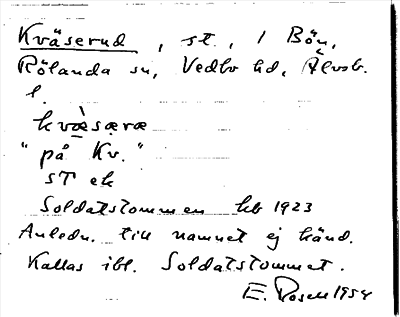 Kväserud, st., / Bön,
Rölanda sn, Vedbo hd, Älvsb.
l.
kvæ̀særæ
"på Kv."
ST ek
Soldatstommen hb 1923
Anledn. till namnet ej känd.
Kallas ibl. Soldatstommet.
E. Rosell 1954